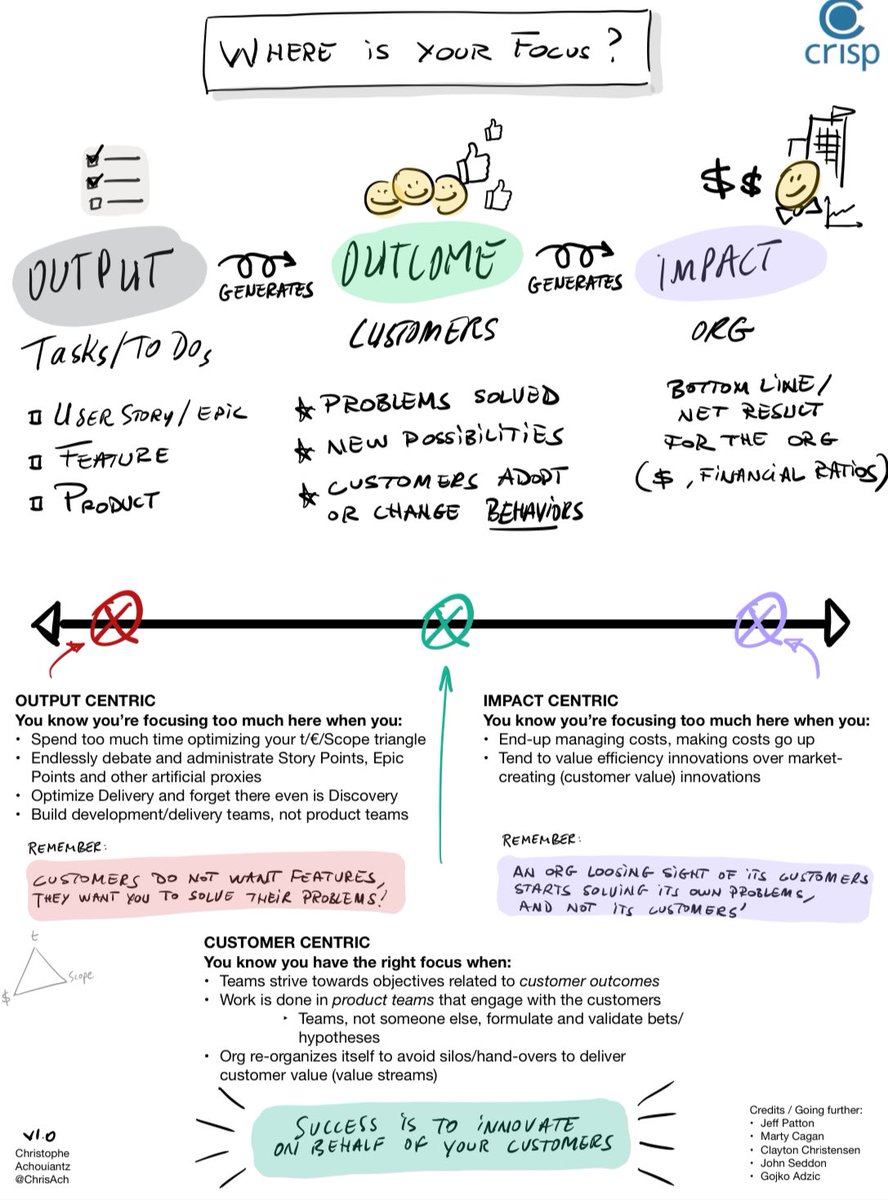 WHERE is YOUR FOCUS?
crisp
$ $
OUTPUT
GENERATES
OUTCOME
GENERATES
iMPACT
Tasks/To Dos
CUSTOMERS
ORG
USER STORY / EPIC
FEATURE
PRODUCT
PROBLEMS SOLVED
NEW POSSiBiLiTiES
CUSTOMERS ADOPT
OR CHANGE BEHAViORS
BOTTOM LINE/
NET RESULT
FOR THE ORG
($, FiNANCiAL RATiOS)
OUTPUT CENTRIC
You know you're focusing too much here when you:
• Spend too much time optimizing your t/€/Scope triangle
• Endlessly debate and administrate Story Points, Epic
Points and other artificial proxies
• Optimize Delivery and forget there even is Discovery
• Build development/delivery teams, not product teams
REMEMBER:
CUSTOMERS DO NOT WANT FEATURES,
THEY WANT YOU TO SOLVE THEIR PROBLEMS!
IMPACT CENTRIC
You know you're focusing too much here when you:
• End-up managing costs, making costs go up
• Tend to value efficiency innovations over market-
creating (customer value) innovations
REMEMBER:
AN ORG LOOSING SIGHT OF iTS CUSTOMERS
STARTS SOLViNG iTS OWN PROBLEMS,
AND NOT iTS CUSTOMERS'
t
Scope
$
CUSTOMER CENTRIC
You know you have the right focus when:
• Teams strive towards objectives related to customer outcomes
• Work is done in product teams that engage with the customers
‣ Teams, not someone else, formulate and validate bets/
hypotheses
• Org re-organizes itself to avoid silos/hand-overs to deliver
customer value (value streams)
SUCCESS iS TO iNNOVATE
ON BEHALF OF YOUR CUSTOMERS
v1.0
Christophe
Achouiantz
@ChrisAch
Credits / Going further:
• Jeff Patton
• Marty Cagan
• Clayton Christensen
• John Seddon
• Gojko Adzic